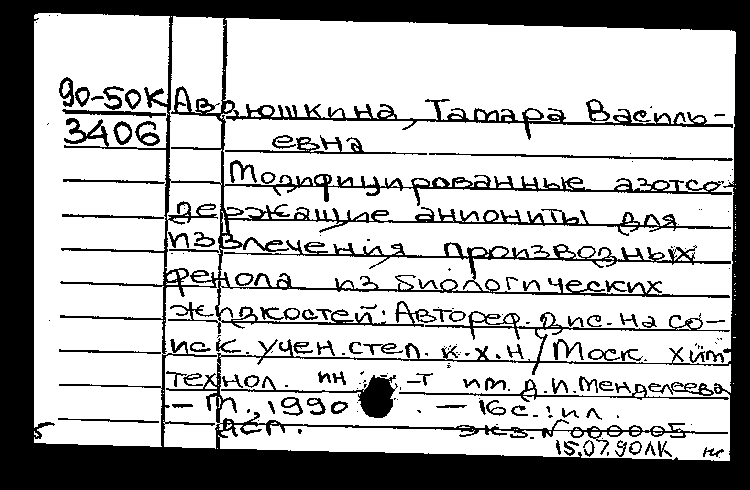 90-50К Авдюшкина, Тамара Василь-
3406 евна
Модифицированные азотсо-
держащие аниониты для
извлечения производных
фенола из биологических
жидкостей: Автореф. дис. на со-
иск. учен. степ. к.х.н. / Моск. хим-
технол. ин -т им. Д.И. Менделеева
— М., 1990 . — 16 с. : ил.
ДСП. экз. № 000005
15.07.90ЛК.